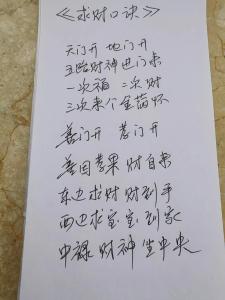 《求财口诀》
天门开 地门开
五路财神进门来
一次福 二次财
三次来个金满怀
善门开 慧门开
善因善果 财自来
东边求财 财到手
西边求宝 宝到家
中禄财神坐中央